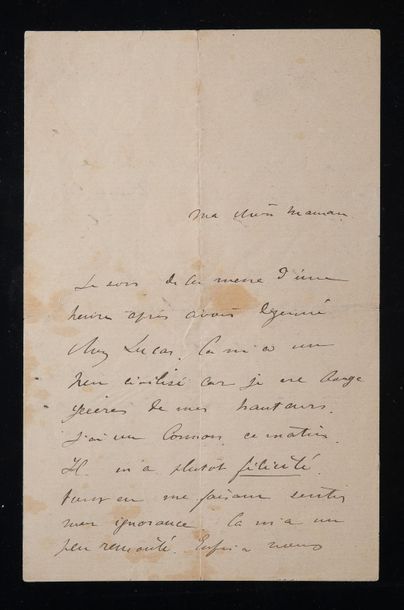 ma chère maman
Je sors de la messe d'une
heure après avoir dejeuné
chez Lucas. Ca m'a un
peu civilisé car je ne bouge
guères de mes hauteurs.
J'ai vu Cormon ce matin.
Il m'a plutôt félicité
tout en me faisant sentir
mon ignorance. Ca m'a un
peu remonté. Enfin nous